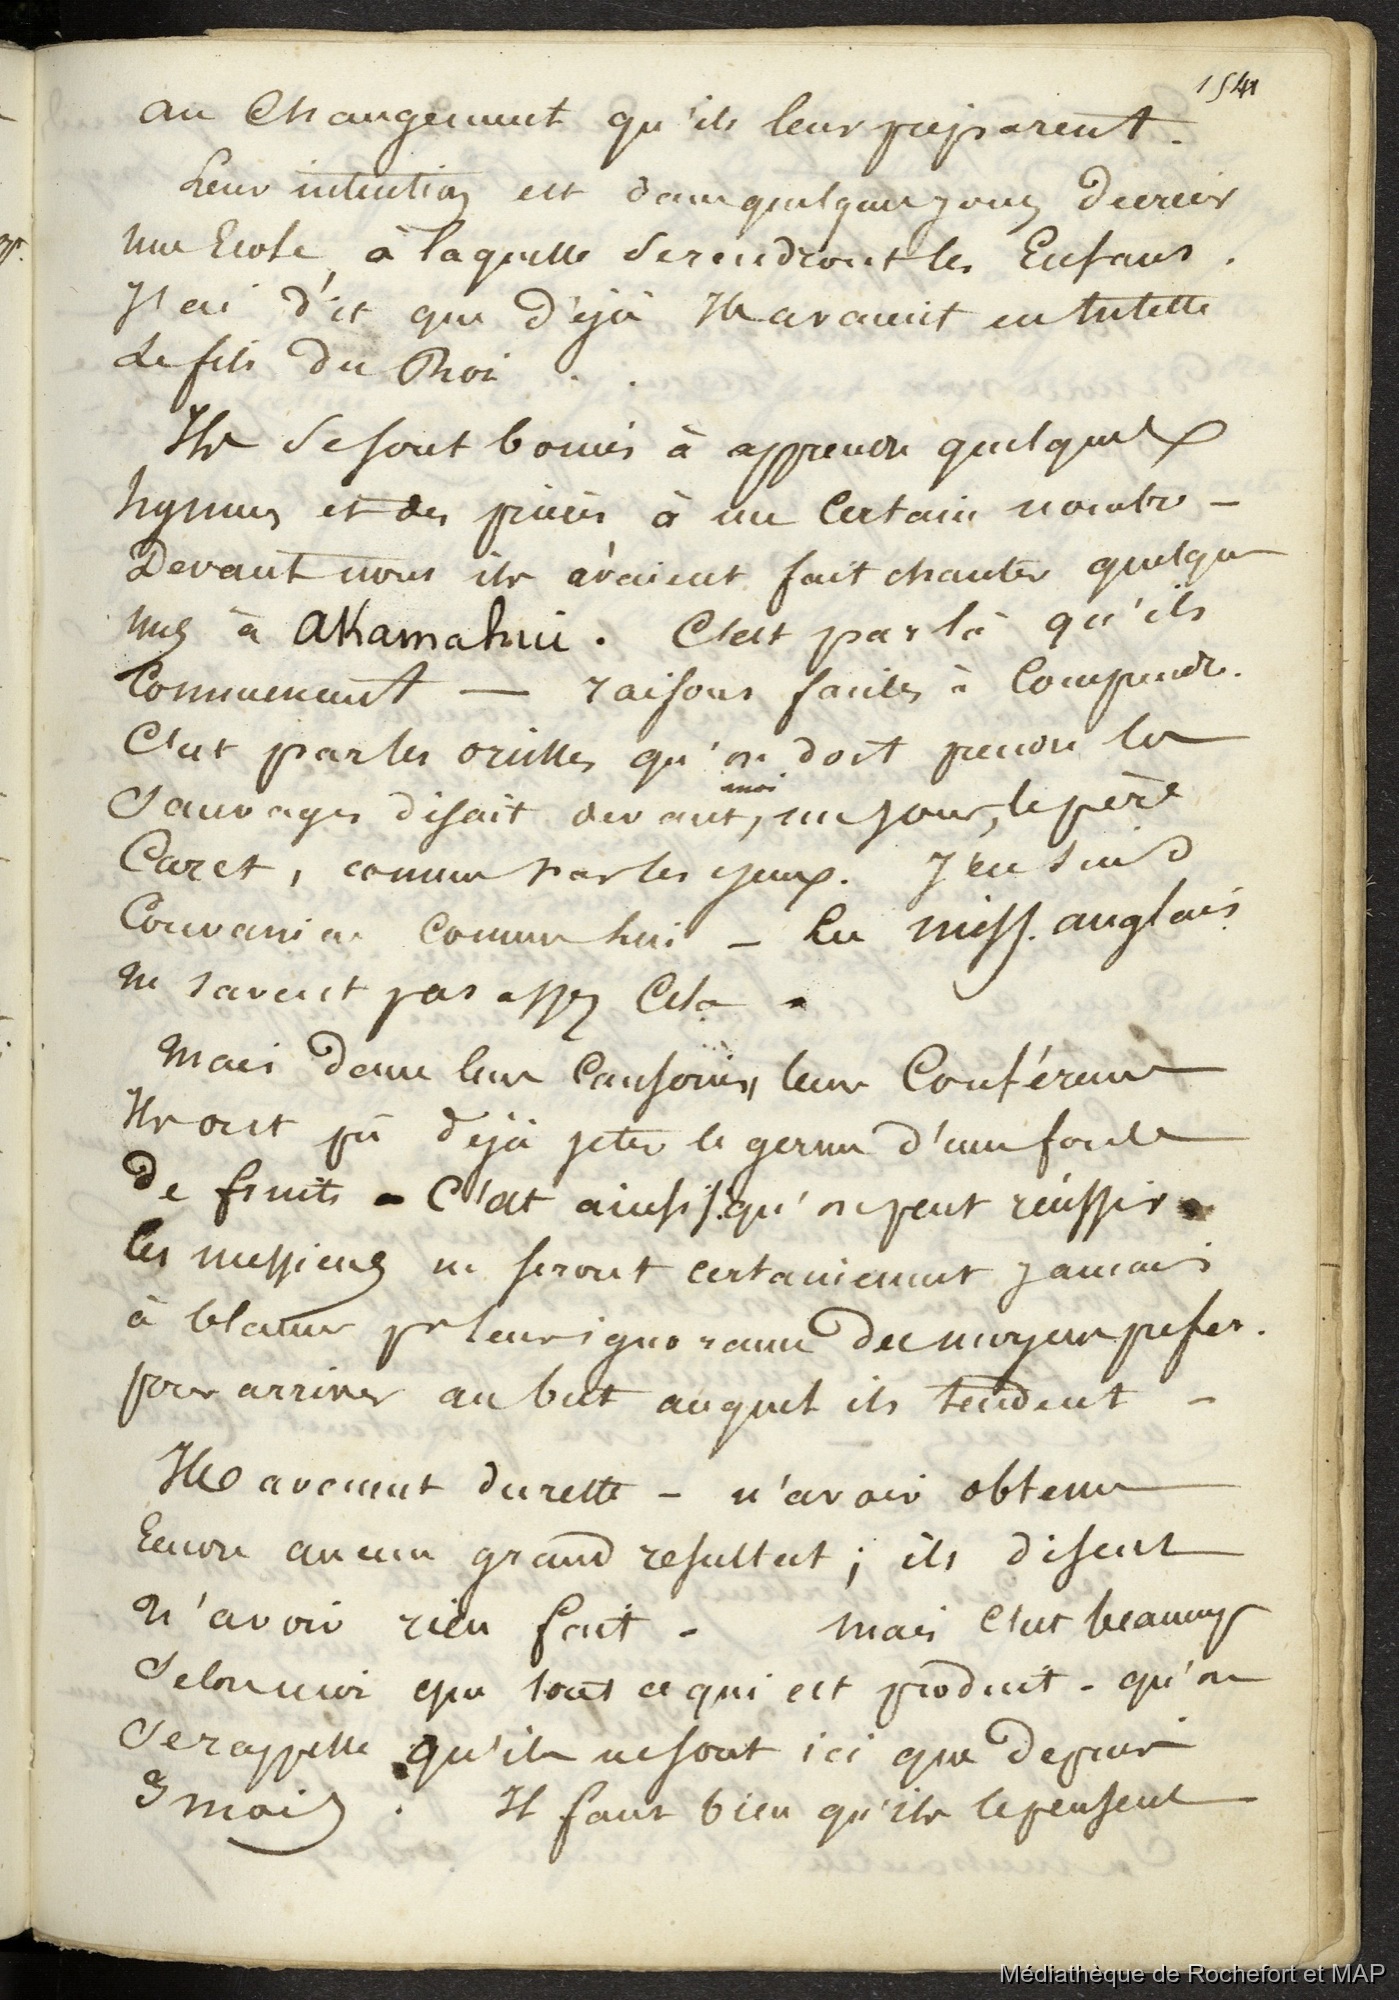 1541
au Changement qu'ils leur préparent.
Leur intention est dans quelques jours d'ecrir
une Ecole, à laquelle se rendront les Enfans.
J'ai d'it que d'éjà Ils avaient en tutelle
Le fils du Roi . .
Ils se sont bornés à apprendre quelques
hymnes et des prières à un certain nombre -
Devant nous ils avaient fait chanter quelques
unes à Akamahui. C'est par là qu'ils
Commencent — raisons faciles à Comprendre.
C'est par les oreilles qu'on doit prendre les
Sauvages disait devant moi, un jour, le père
Caret, comme par les yeux. J'en suis
Convaincu comme lui - Les miss. anglais
ne savent pas assez Cela -
Mais dans leur Causeries, leur Conférences
Ils ont pû déjà jeter le germe d'une foule
De fruits - C'est ainsi qu'on peut réussir -
Ces messieurs ne seront certainement jamais
à blamer pr leur ignorance des moyens préfér.
pour arriver au but auquel ils tendent -
Ils avouent du reste - n'avoir obtenu
Encore aucun grand resultat ; ils disent
N'avoir rien fait - Mais C'est beaucoup
Selon moi que tout ce qui est produit - qu'on
Se rappelle qu'ils ne sont ici que depuis
3 mois . Il faut bien qu'ils le pensent
Médiathèque de Rochefort et MAP